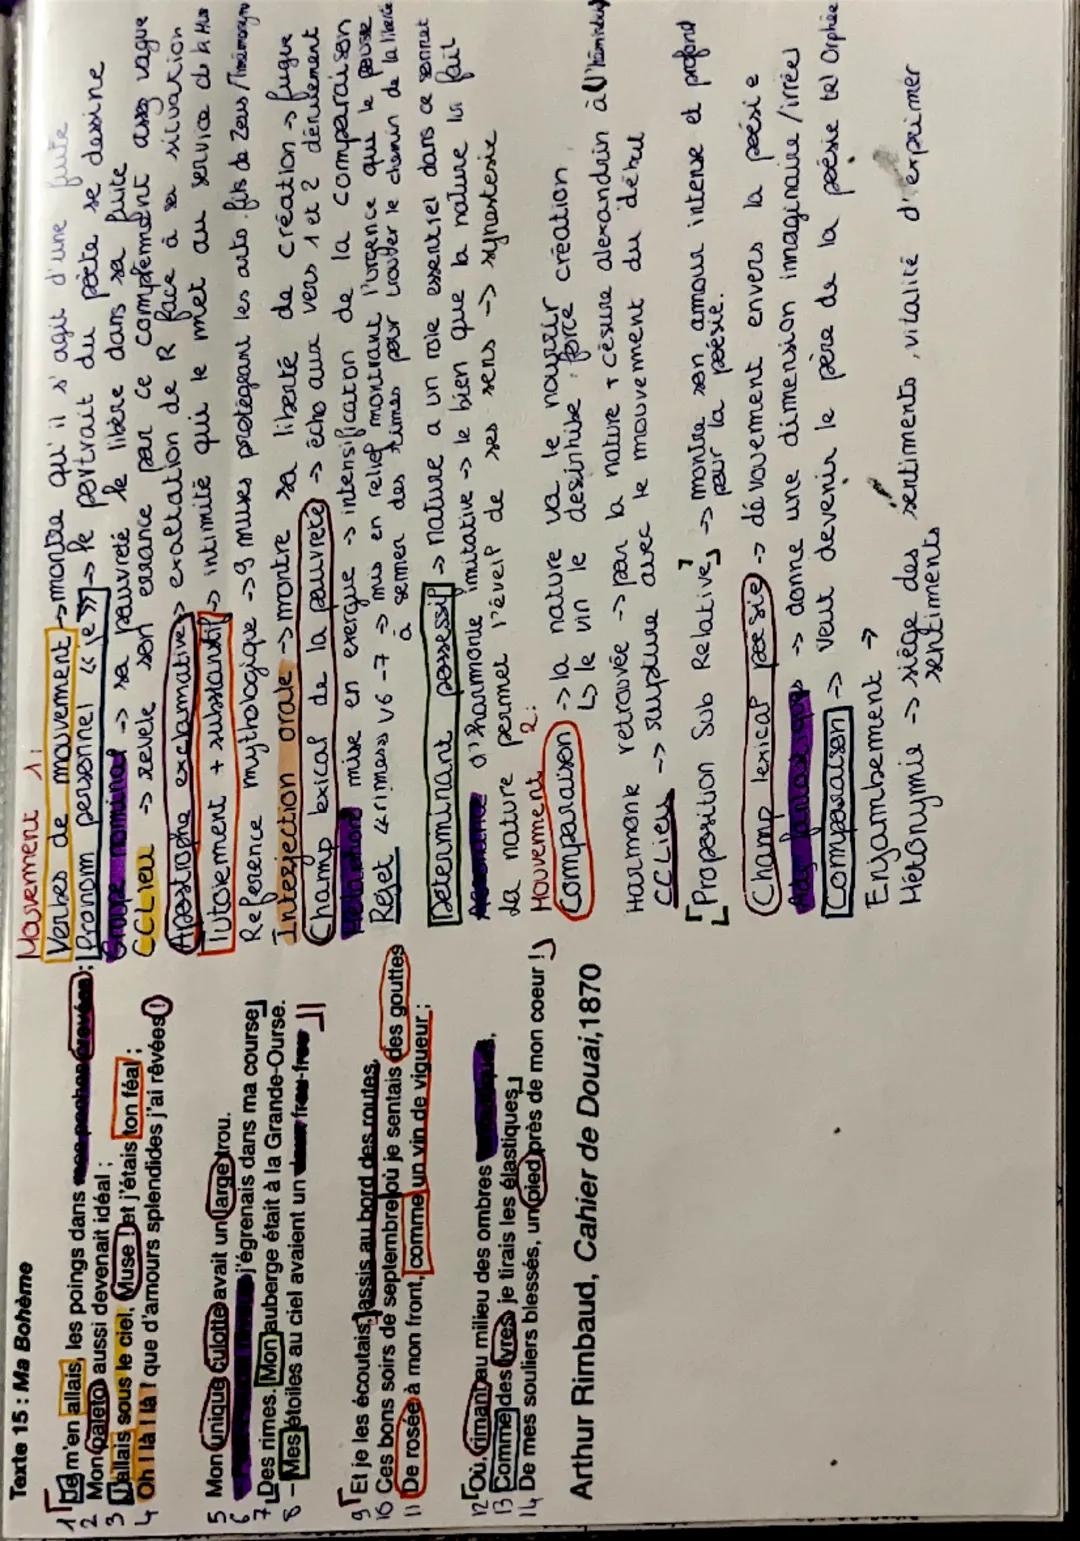 Texte 15 : Ma Bohème
1 Je m'en allais, les poings dans crevées ;
2 Mon paletot aussi devenait idéal ;
3 J'allais sous le ciel, Muse ! et j'étais ton féal ;
4 Oh ! là ! là ! que d'amours splendides j'ai rêvées !
5 Mon unique culotte avait un large trou.
6 j'égrenais dans ma course
7 Des rimes. Mon auberge était à la Grande-Ourse.
8 - Mes étoiles au ciel avaient un frou-frou
9 Et je les écoutais, assis au bord des routes,
10 Ces bons soirs de septembre où je sentais des gouttes
11 De rosée à mon front, comme un vin de vigueur ;
12 Où, rimant au milieu des ombres
13 Comme des lyres, je tirais les élastiques
14 De mes souliers blessés, un pied près de mon coeur !
Arthur Rimbaud, Cahier de Douai, 1870
Mouvement 1 :
Verbes de mouvement -> montre qu'il s'agit d'une fuite
Pronom personnel « je » -> le portrait du poète se dessine
Groupe nominal -> sa pauvreté le libère dans sa fuite
CCLieu -> revele son errance par ce complement assez vague
Apostrophe exclamative -> exaltation de R face à sa situation
Tutoiement + substantif -> intimité qui le met au service de la Muse
Reference mythologique -> 9 muses protégeant les arts fils de Zeus /
Interjection orale -> montre sa liberté de création -> fugue
Champ lexical de la pauvreté -> écho aux vers 1 et 2 dénuement
mise en exergue -> intensification de la comparaison
Rejet « rimes » V6-7 -> mis en relief montrant l'urgence qui le pousse
à semer des rimes pour trouver le chemin de la liberté
Determinant possessif -> nature a un role essentiel dans ce sonnet
d'harmonie imitative -> le bien que la nature lui fait
La nature permet l'éveil de ses sens -> synesthesie
Mouvement 2 :
Comparaison -> la nature va le nourrir
↳ le vin le desinhibe : force création
Harmonie retrouvée -> par la nature + césure alexandrin à l'hémistiche
CCLieu -> rupture avec le mouvement du début
[Proposition Sub Relative] -> montre son amour intense et profond
pour la poésie.
Champ lexical poesie -> dévouement envers la poésie
-> donne une dimension imaginaire / irréel
Comparaison -> veut devenir le père de la poésie tel Orphée
Enjambement ->
Métonymie -> siège des sentiments, vitalité d'exprimer
sentiments